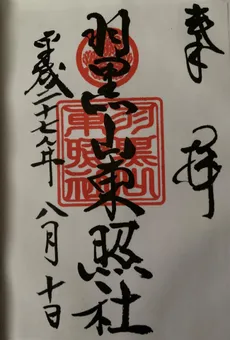 奉拝
羽黒山東照社
羽黒山
東照社
平成二十七年 八月 十日